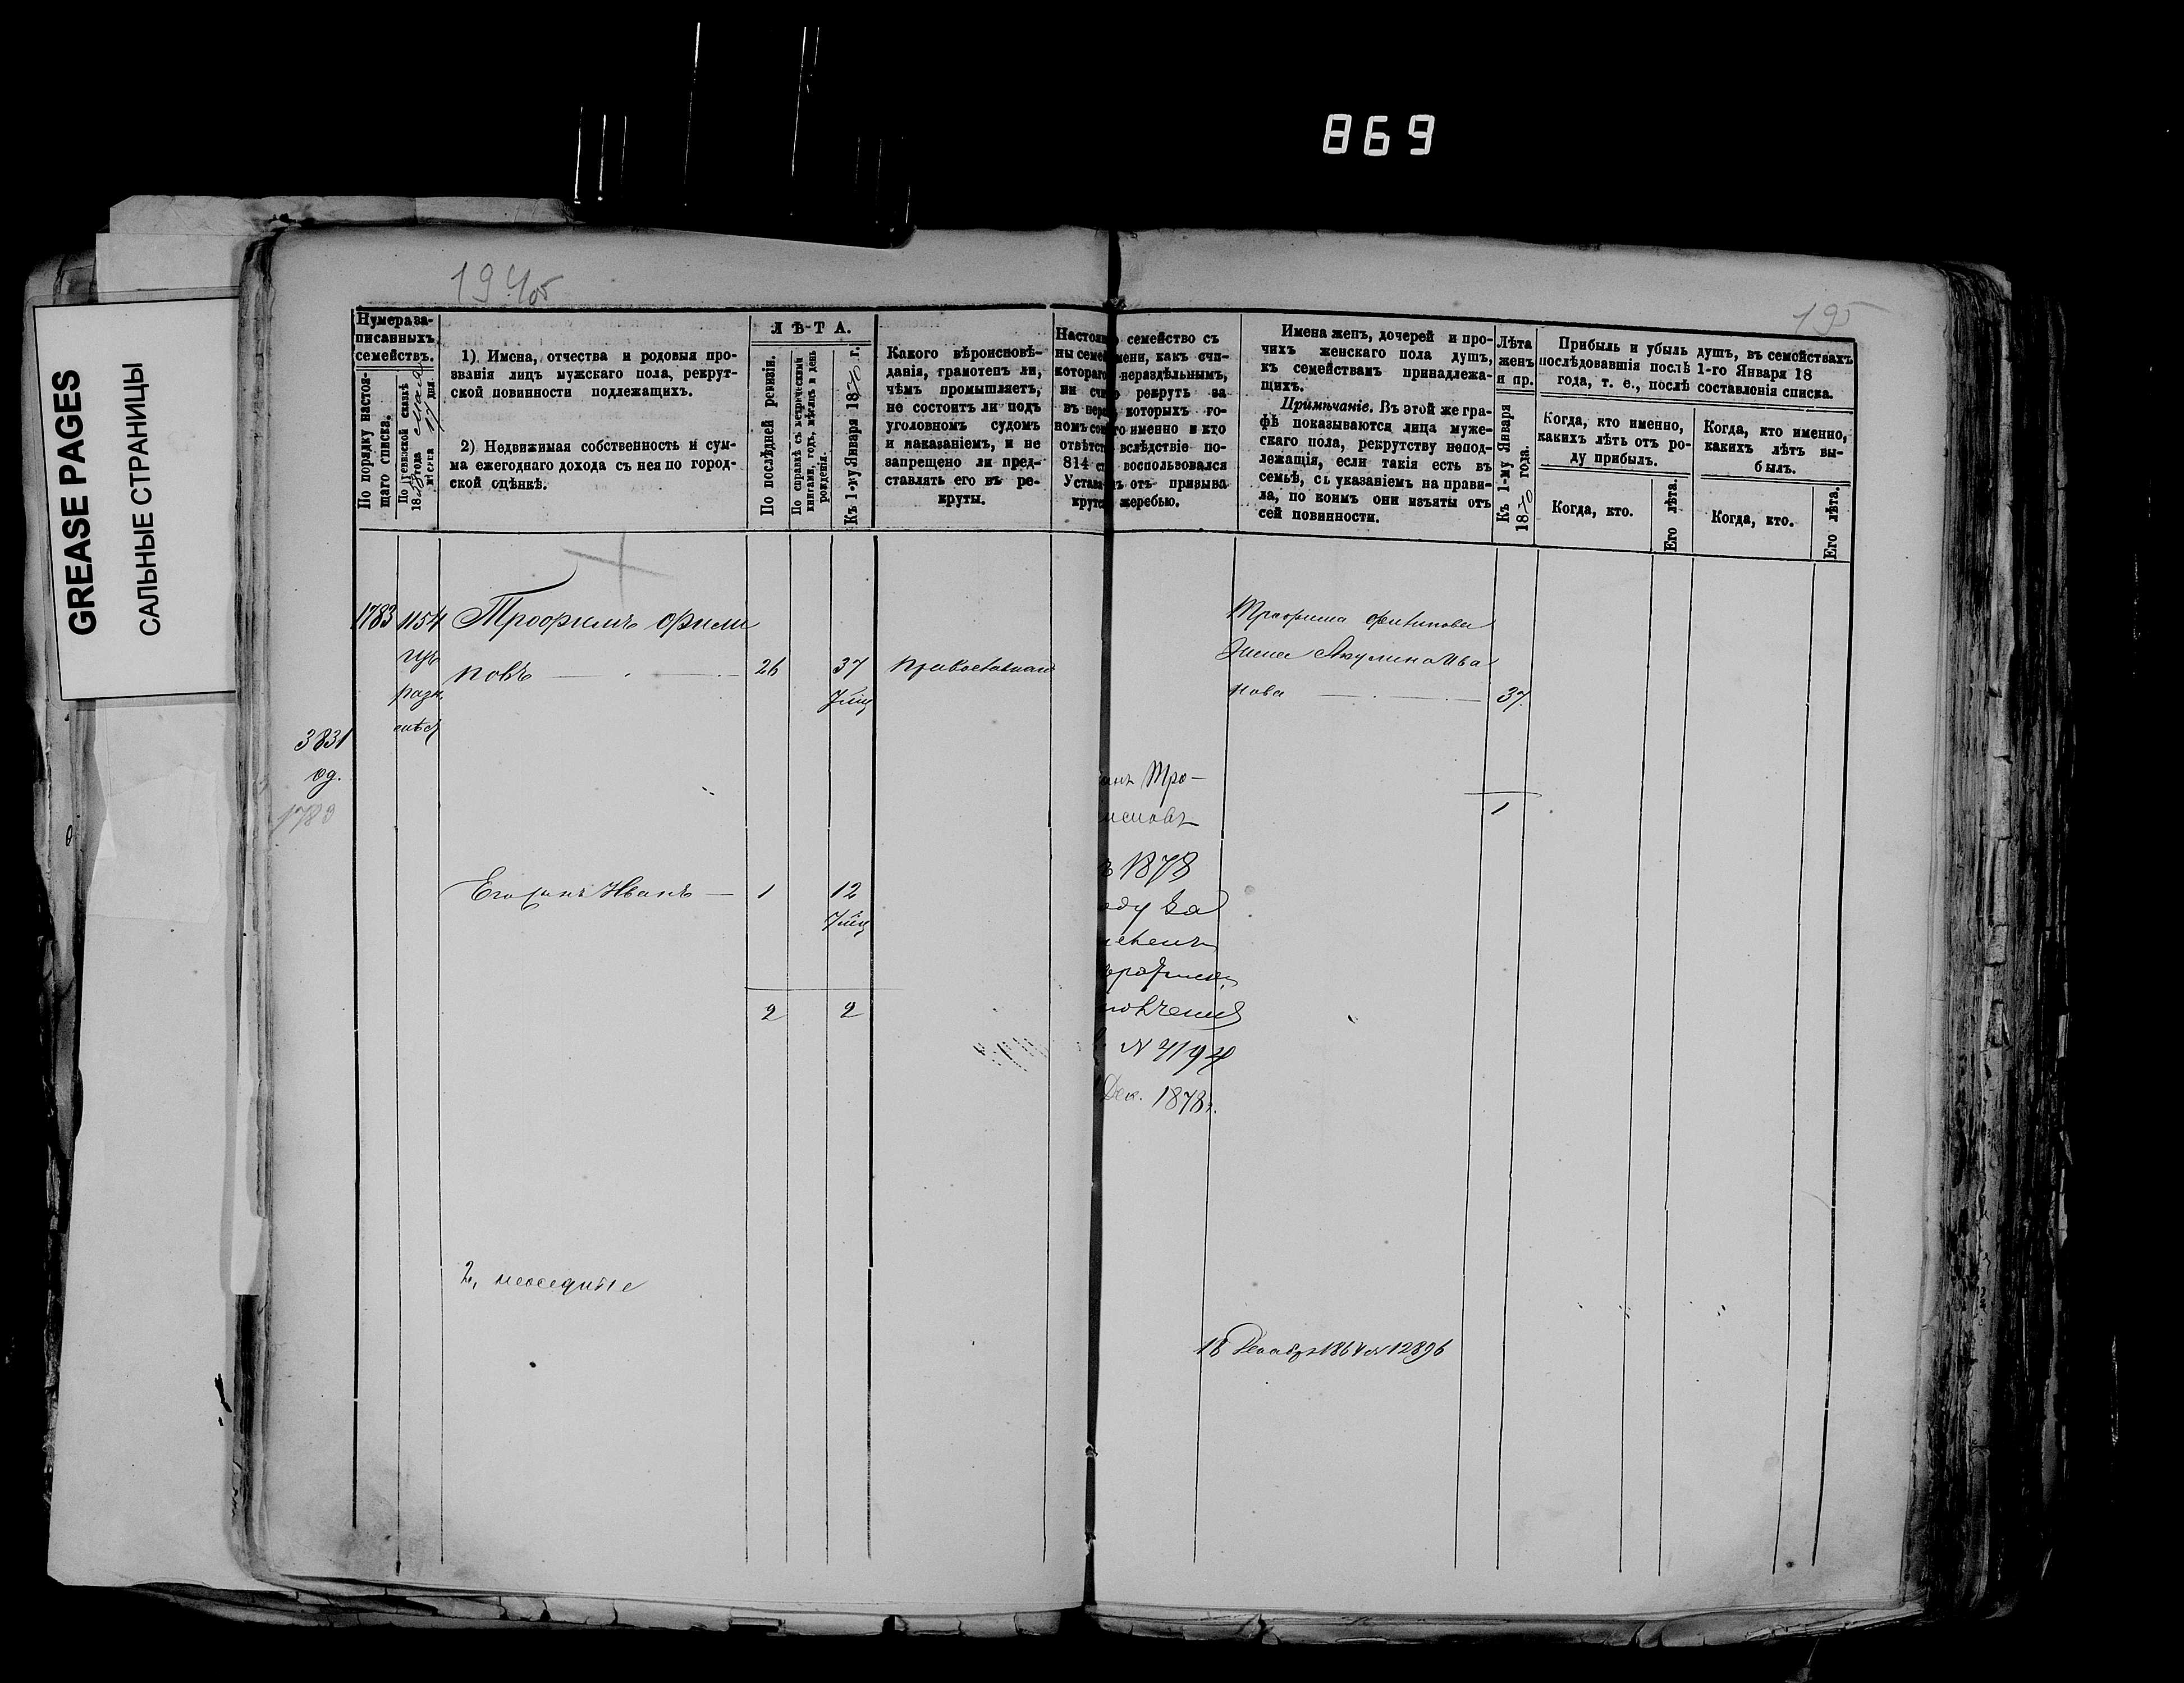 869
GREASE PAGES
САЛЬНЫЕ СТРАНИЦЫ
194 об
195
Нумера за-
писанныхъ
семействъ.
По порядку настоя-
щаго списка.
По ревизской сказкѣ
1858 года
мѣсяца 17 дня.
1) Имена, отчества и родовыя про-
званія лицъ мужскаго пола, рекрут-
ской повинности подлежащихъ.
2) Недвижимая собственность и сум-
ма ежегоднаго дохода съ нея по город-
ской оцѣнкѣ.
Л Ѣ Т А.
По послѣдней ревизіи.
По справкѣ съ метрическими
книгами, годъ, мѣсяцъ и день
рожденія.
Къ 1-му Января 1870 г.
Какого вѣроисповѣ-
данія, грамотенъ ли,
чѣмъ промышляетъ,
не состоитъ ли подъ
уголовномъ судомъ
и наказаніемъ, и не
запрещено ли пред-
ставлять его въ ре-
круты.
Настоя семейство съ
ны семе мени, какъ счи-
котораго нераздѣльнымъ,
ли счи рекрутъ за
въ пер которыхъ го-
номъ со то именно и кто
отвѣтст вслѣдствіе по-
814 ст воспользовался
Устава ъ отъ призыва
крутс жеребью.
Имена женъ, дочерей и про-
чихъ женскаго пола душъ,
къ семействамъ принадлежа-
щихъ.
Примѣчаніе. Въ этой же гра-
фѣ показываются лица муже-
скаго пола, рекрутству непод-
лежащія, если такія есть въ
семьѣ, съ указаніемъ на прави-
ла, по коимъ они изъяты отъ
сей повинности.
Лѣта
женъ
и пр.
Къ 1-му Января
1870 года.
Прибыль и убыль душъ, въ семействахъ
послѣдовавшія послѣ 1-го Января 18
года, т. е., послѣ составленія списка.
Когда, кто именно,
какихъ лѣтъ отъ ро-
ду прибылъ.
Когда, кто именно,
какихъ лѣтъ вы-
былъ.
Когда, кто.
Его лѣта.
Когда, кто.
Его лѣта.
1783 1154 Трофимъ Фили
повъ 26 37 православнаго
7 мѣц
3831
од.
1783
Его сынъ Иванъ — 1 12
7 мѣц
2 2
2, неоседлые
Трофима Филипова
Жена Акулина Ива
нова 37
1
анъ Тро-
имовъ
в 1878
оду за
N 7194
Дек. 1878 г.
18 Декабря 1864 N 12896